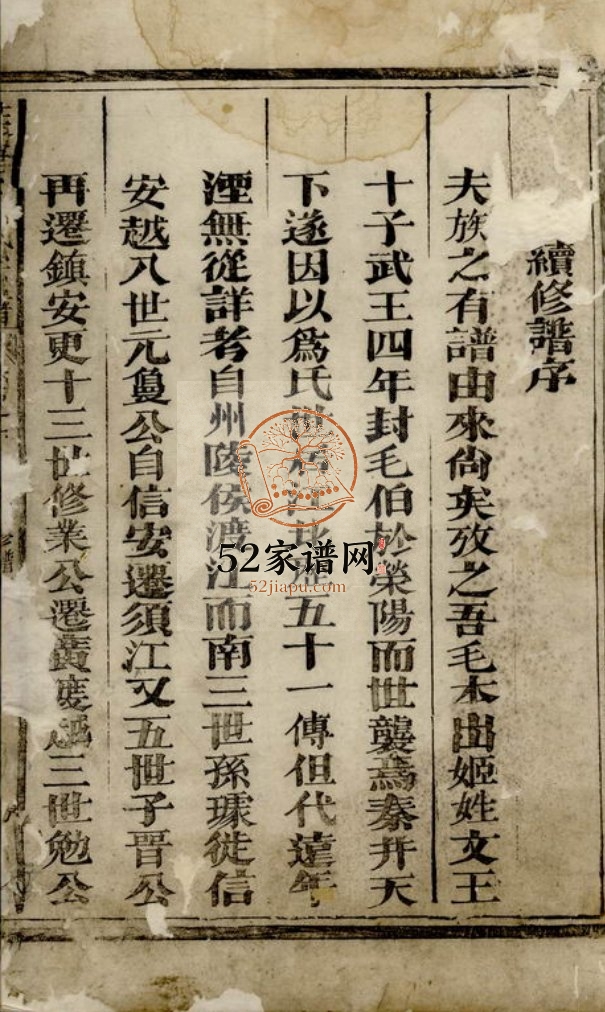 續修譜序
夫族之有譜由來尙矣攷之吾毛本出姬姓文王
十子武王四年封毛伯於滎陽而世襲焉秦幷天
下遂因以爲氏世居江北歷五十一傳但代遠年
湮無從詳考自州陵侯渡江而南三世孫璩從信
安越八世元㒷公自信安遷須江又五世子晋公
再遷鎮安更十三世修業公遷廣度越三世勉公
譜
52家谱网
52jiapu.com